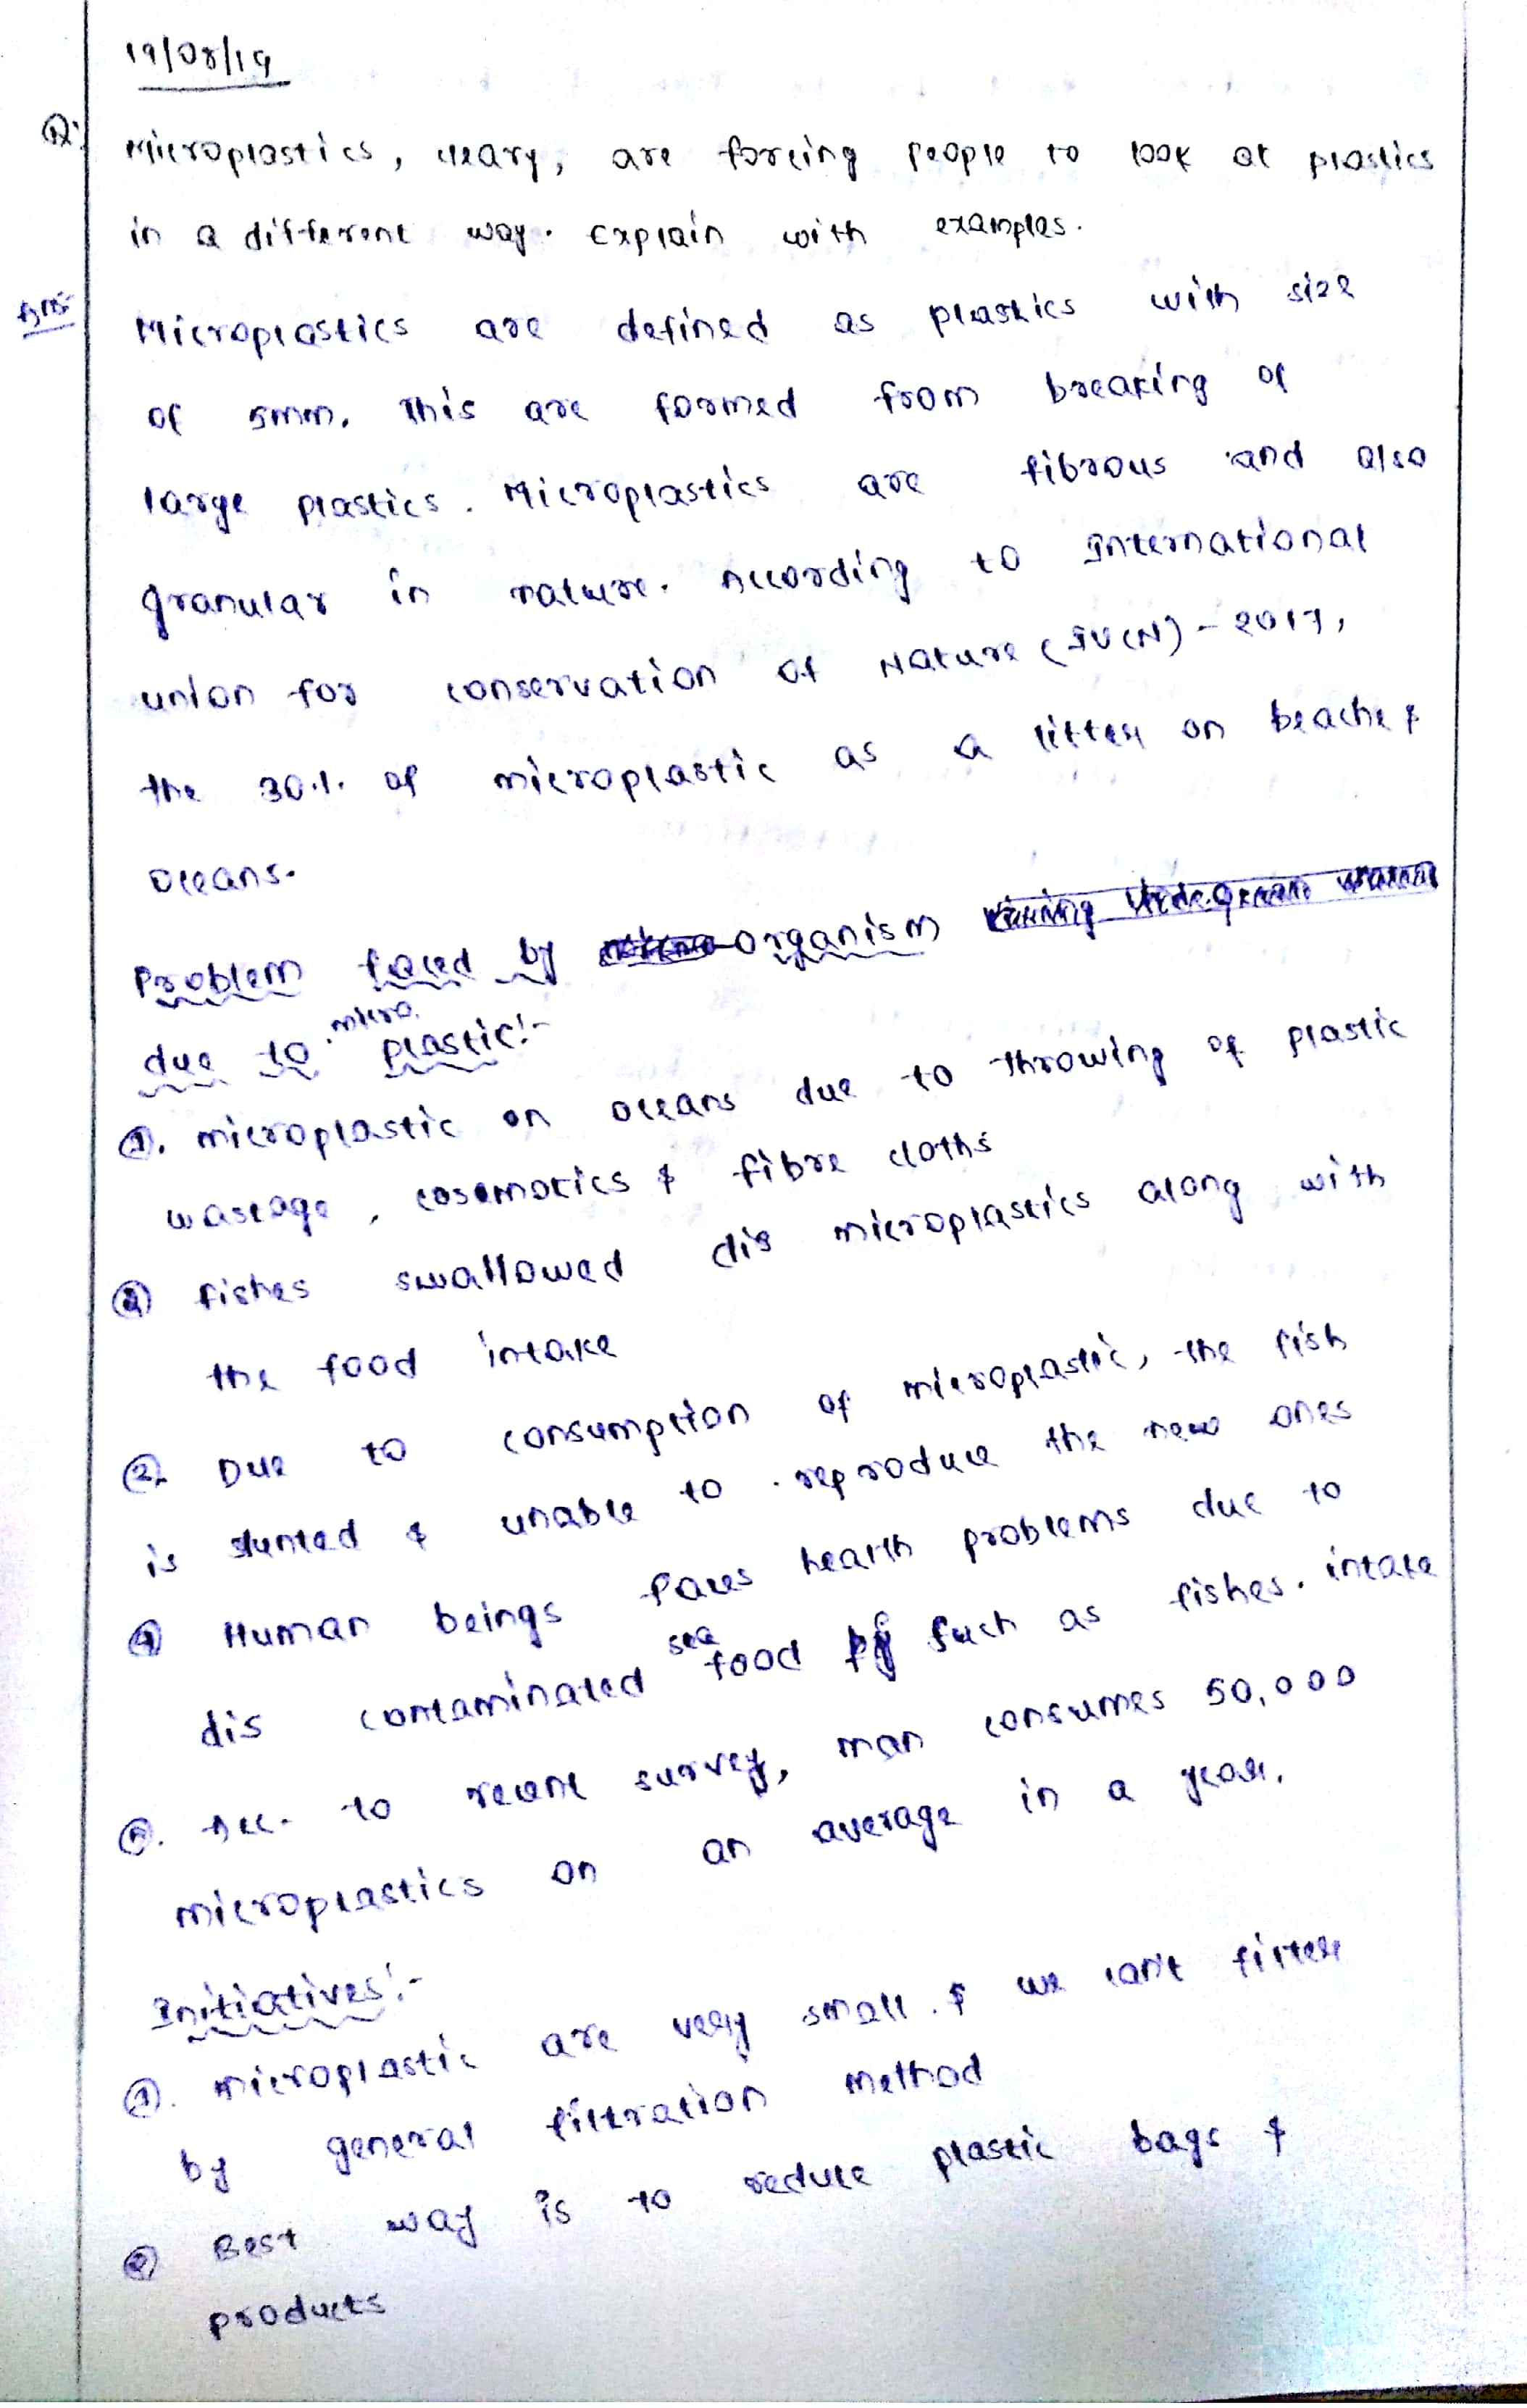 19/08/19
Q: Microplastics, cleary, are forcing people to look at plastics
in a different way. Explain with examples.
Ans: Microplastics are defined as plastics with size
of 5mm. This are formed from breaking of
large plastics. Microplastics are fibrous and also
granular in nature. According to International
union for conservation of Nature (IUCN) - 2017,
the 30% of microplastic as a litter on beache &
oceans.
Problem faced by organism
due to micro plastic:-
①. microplastic on oceans due to throwing of plastic
wastage, cosemotics & fibre cloths
② fishes swallowed dis microplastics along with
the food intake
② Due to consumption of microplastic, the fish
is stunted & unable to reproduce the new ones
④ Human beings faces health problems due to
dis contaminated sea food such as fishes. intake
⑤. Acc. to recent survey, man consumes 50,000
microplastics on an average in a year.
Initiatives:-
①. microplastic are very small. & we can't filter
by general filtration method
② Best way is to reduce plastic bags &
products